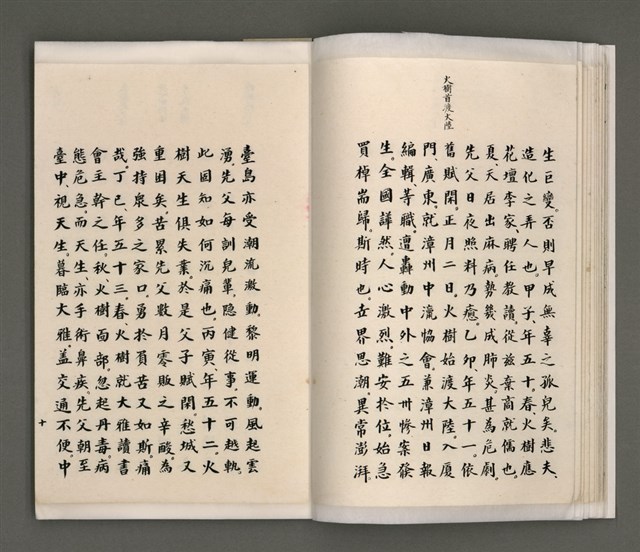 火樹首渡大陸
生巨變。否則早成無辜之孤兒矣。悲夫、
造化之弄人也。甲子、年五十。春火樹應
花壇李家聘任教讀。從茲棄商就儒也。
夏、天居出麻病勢幾成肺炎。甚為危劇。
先父日夜照料乃癒。乙卯、年五十一。依
舊賦閑。正月二日、火樹始渡大陸。入厦
門、廣東、就漳州中瀛協會。兼漳州日報
編輯等職。遭轟動中外之五卅慘案發
生。全國譁然。人心激烈、難安於位。始急
買棹耑歸。斯時也。世界思潮。異常澎湃。
臺島亦受潮流激動。黎明運動。風起雲
湧。先父每訓兒輩。隱健從事。不可越軌。
此固知如何沉痛也。丙寅、年五十二。火
樹天生俱失業。於是父子賦閑。愁城又
重困矣。苦累先父數月零販之辛酸。為
強持衆多之家口。勇於負苦又如斯痛
哉。丁巳、年五十三。春、火樹就大雅讀書
會主幹之任。秋、火樹面部。忽起丹毒病
態危急。而天生亦手術鼻疾。先父朝至
臺中、視天生。暮臨大雅。蓋交通不便。中
十